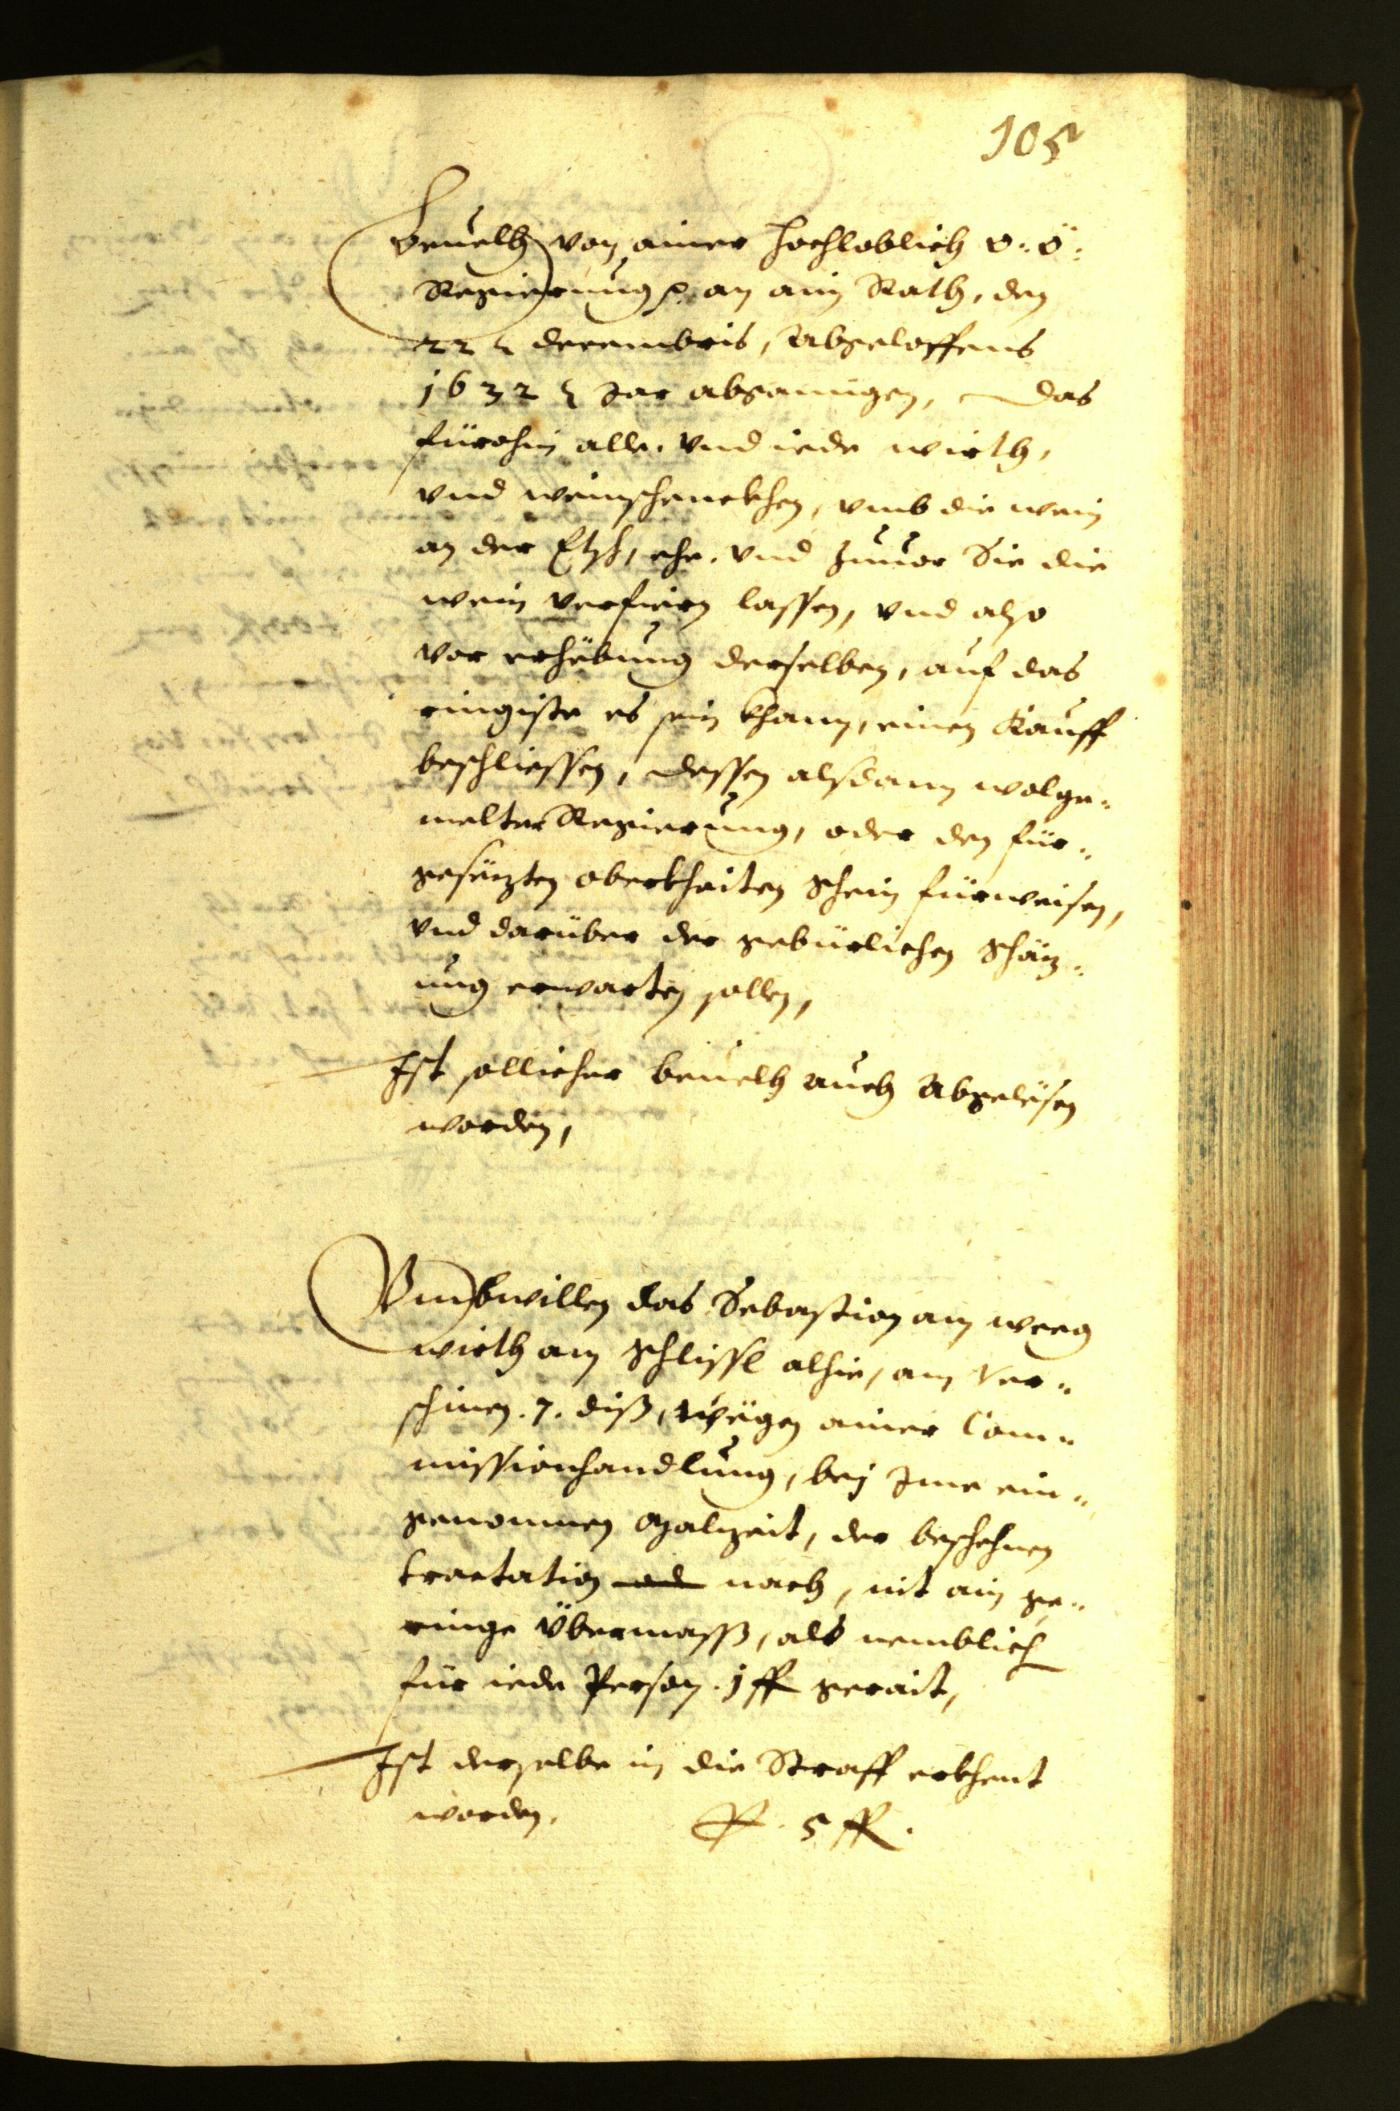 105
Beuelh von ainer hochloblich o: ö:
Regierung ꝛc. an ain Rath, den
22 ten decembris, Abgeloffens
1632 ten Jar abganngen, das
fürohin alle, vnd iede wirth,
vnd weinschenckhen, vmb die wein
an der Etsch, ehe, vnd Zuuor Sie die
wein verfiern lassen, vnd also
vor erhöbung derselben, auf das
ringiste es sein khann, einen Kauff
beschliessen, dessen alsdann wolge-
melter Regierung, oder den für-
gesözten oberkhaiten schein fürweisen,
vnd darüber der gebürlichen schäz-
ung erwarten sollen,
Ist sollicher beuelh auch Abgelösen
worden,
Vmbwillen das Sebastian am weeg
wirth am schlissl alhie, am ver-
schinen .7. diß, wögen ainer Com-
missionhandlung, bej Jme ein-
genomnen Malzeit, der beschehnen
tractation nach, nit ain ge-
ringe Übermass, als nemblich
für iede Person . 1 fl gerait,
Ist derselbe in die Straff erkhent
worden. P. 5 fl.